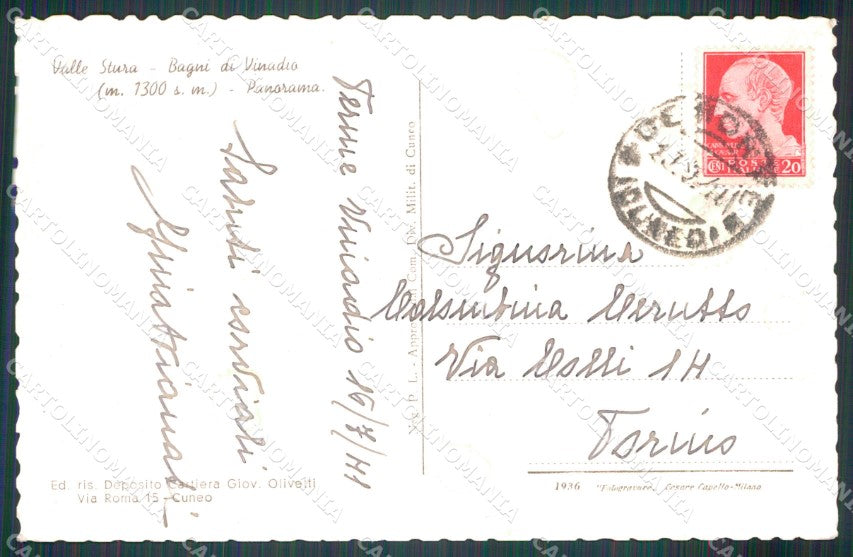 Valle Stura - Bagni di Vinadio
(m. 1300 s. m.) - Panorama.
Terme Vinadio 16/7/41
Saluti cordiali
Ed. ris. Deposito Cartiera Giov. Olivetti
Via Roma 15 - Cuneo
Com. Div. Milit. di Cuneo
CENT. POSTE 20
DEMONTE
(CUNEO)
Signorina
Colombina Cerutto
Via Colli 14
Torino
1936 "Fotogravure" Cesare Capello-Milano
CARTOLINOMANIA